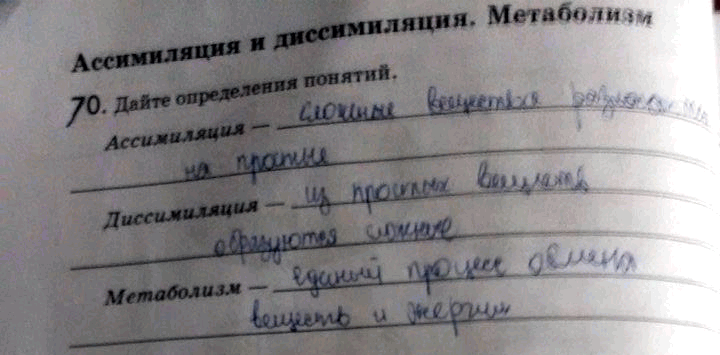 Ассимиляция и диссимиляция. Метаболизм
70. Дайте определения понятий.
Ассимиляция — сложные вещества
на простые
Диссимиляция — из простых веществ
образуются сложные
Метаболизм — единый процесс обмена
веществ и энергии